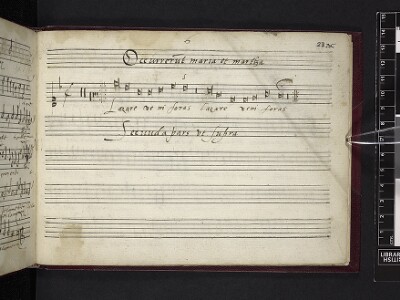 Occurrerūt maria et martha
Lazare ve ni foras Lazare veni foras
Secunda pars ut supra
LIBRARY